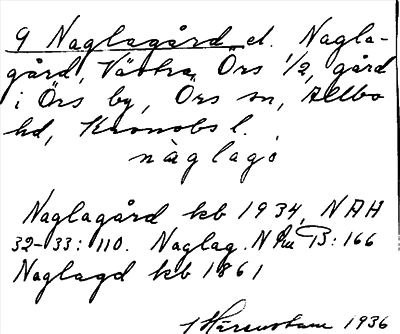 9 Naglagård el. Nagla-
gård, Västra, Örs 1/2, gård
i Örs by, Örs sn, Allbo
hd, Kronobs l.
nàglagò
Naglagård kb 1934, NAH
32-33: 110. Naglag. N B: 166
Naglagd kb 1861
1936